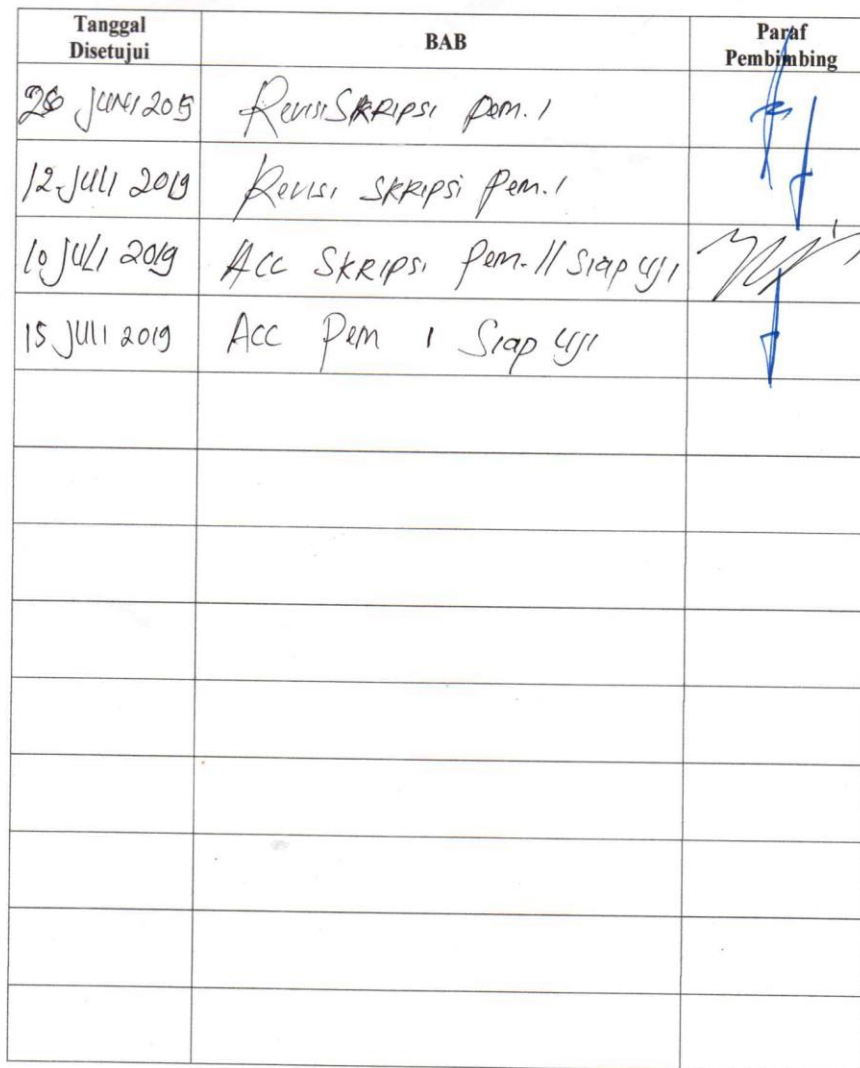 Tanggal Disetujui BAB Paraf Pembimbing
JUNI 2019 Revisi SKRIPSI pem. I
12 JULI 2019 Revisi SKRIPSI Pem. I
10 JULI 2019 ACC SKRIPSI Pem. II Siap Uji
15 JULI 2019 ACC Pem I Siap Uji